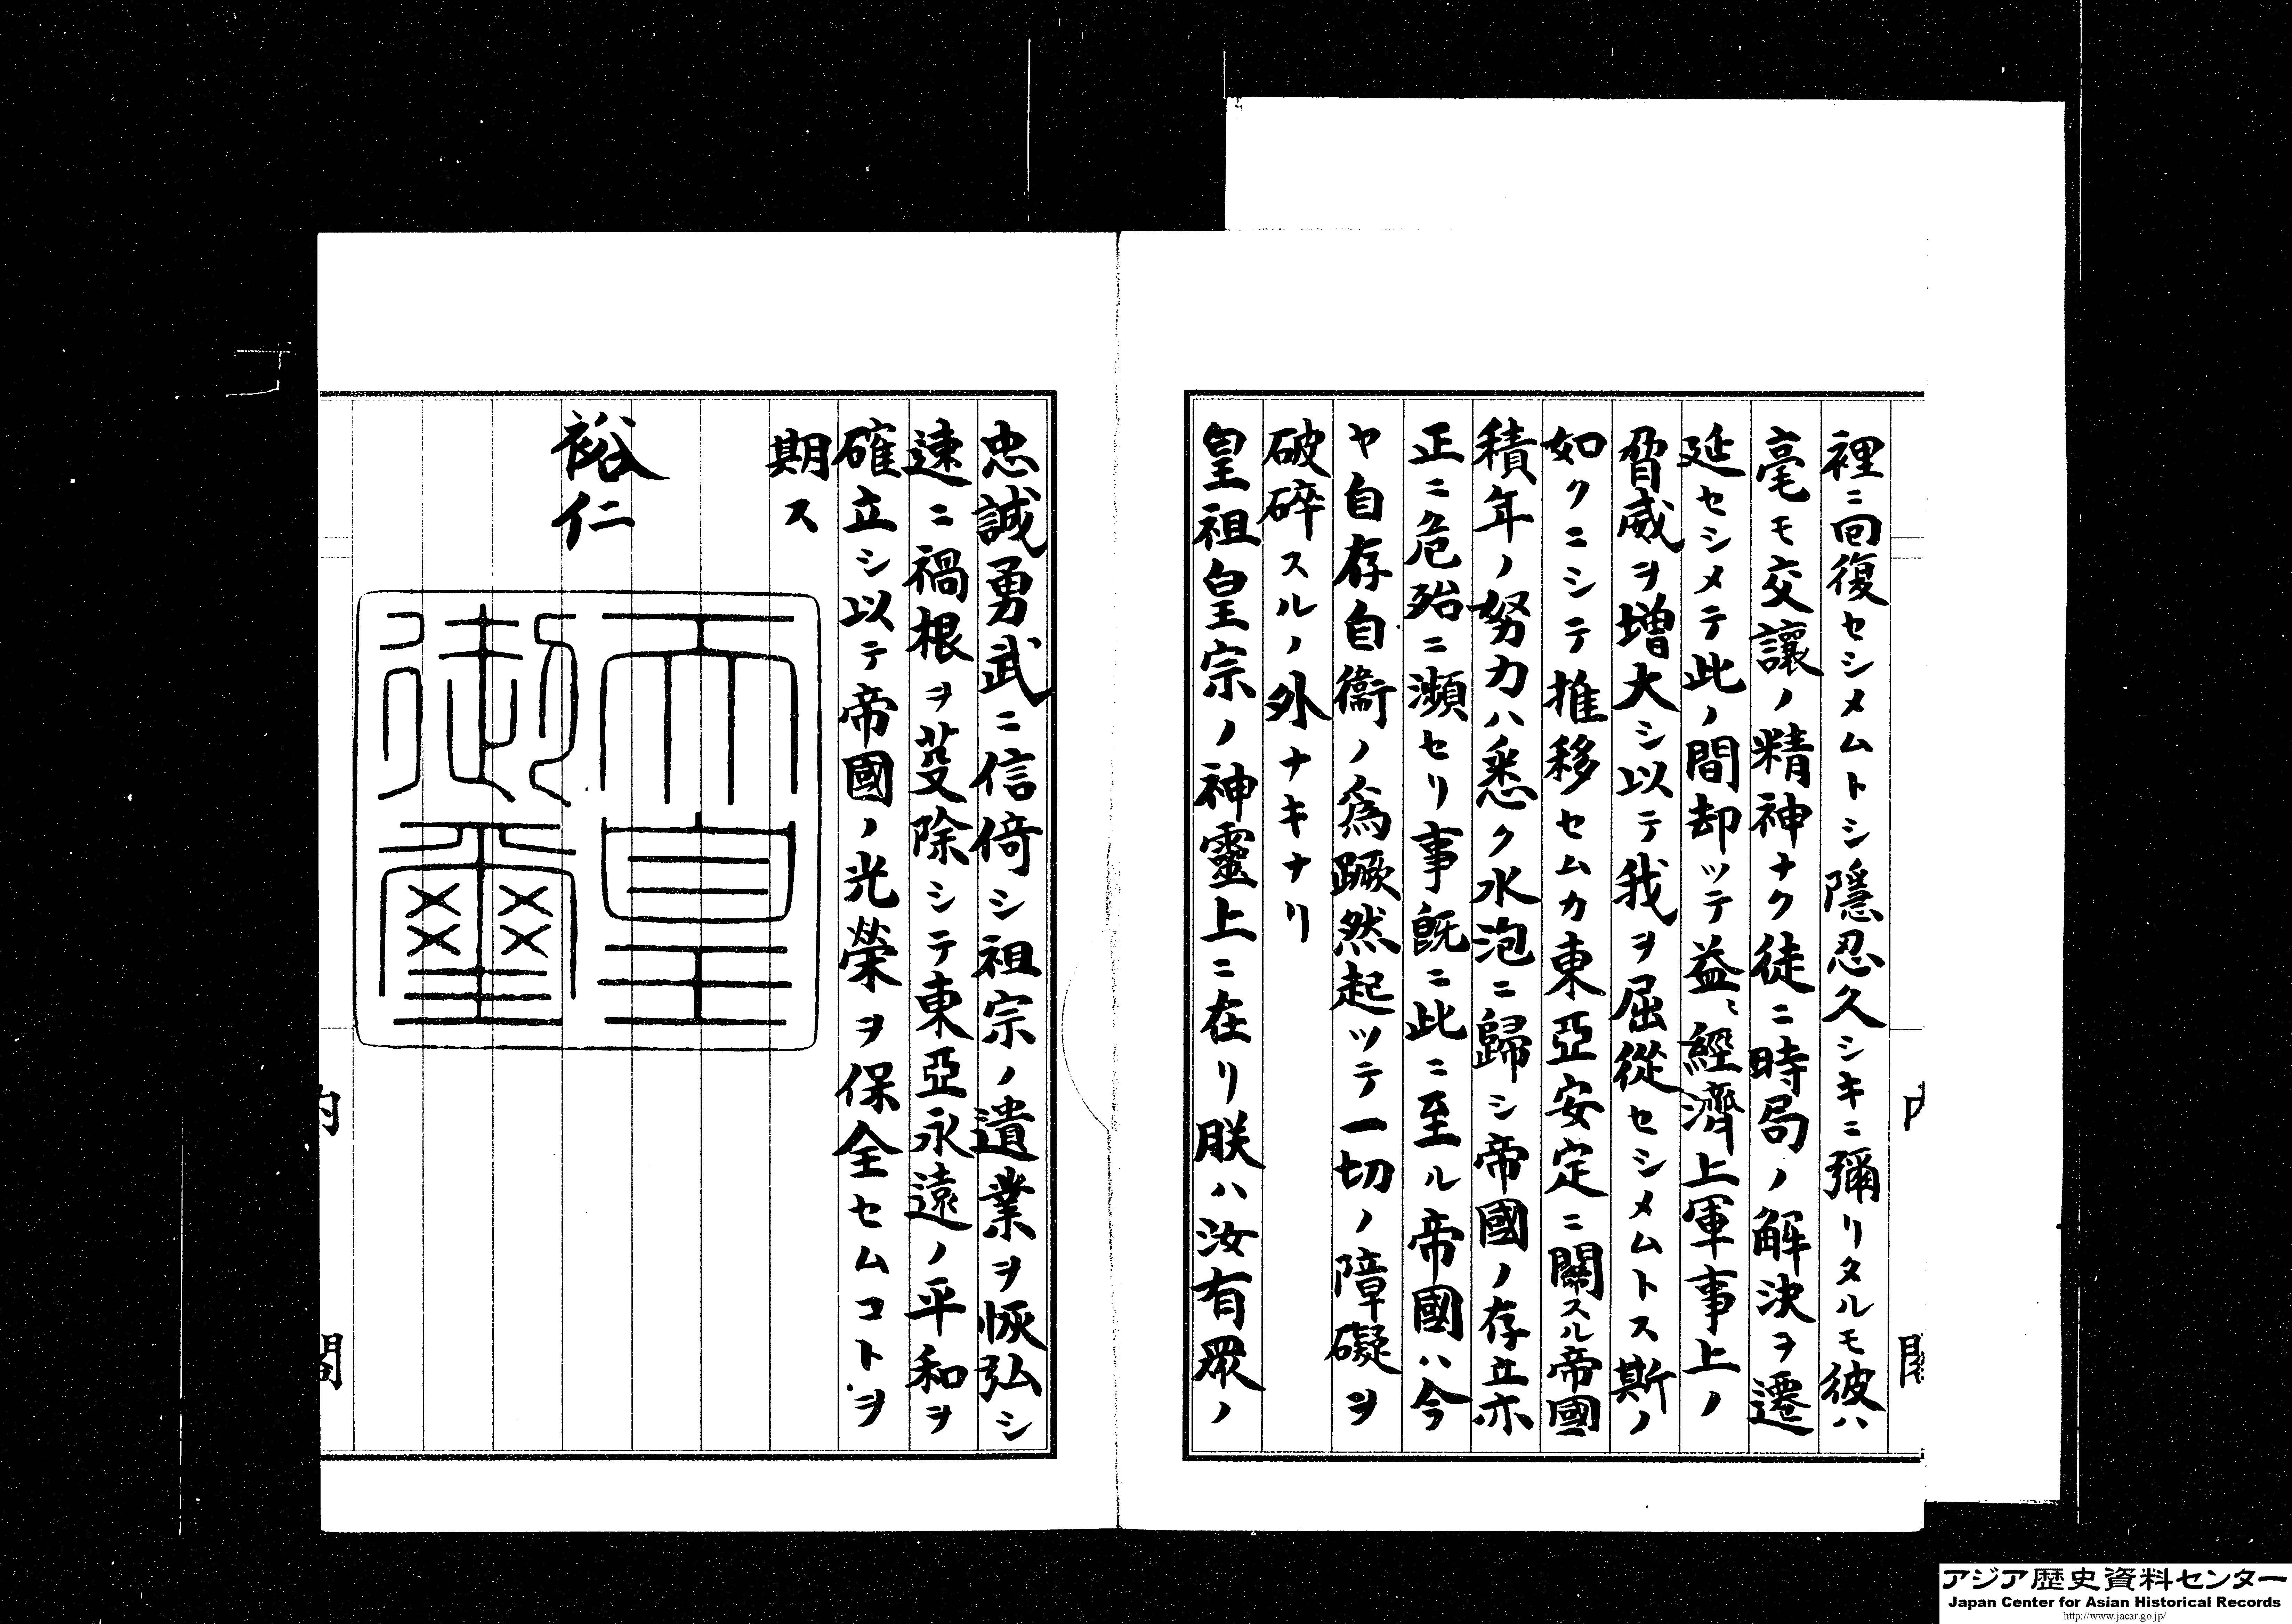 裡ニ回復セシメムトシ隱忍久シキニ彌リタルモ彼ハ
毫モ交讓ノ精神ナク徒ニ時局ノ解決ヲ遷
延セシメテ此ノ間却ツテ益〻經濟上軍事上ノ
脅威ヲ增大シ以テ我ヲ屈從セシメムトス斯ノ
如クニシテ推移セムカ東亞安定ニ關スル帝國
積年ノ努力ハ悉ク水泡ニ歸シ帝國ノ存立亦
正ニ危殆ニ瀕セリ事旣ニ此ニ至ル帝國ハ今
ヤ自存自衞ノ爲蹶然起ツテ一切ノ障礙ヲ
破碎スルノ外ナキナリ
皇祖皇宗ノ神靈上ニ在リ朕ハ汝有眾ノ
忠誠勇武ニ信倚シ祖宗ノ遺業ヲ恢弘シ
速ニ禍根ヲ芟除シテ東亞永遠ノ平和ヲ
確立シ以テ帝國ノ光榮ヲ保全セムコトヲ
期ス
裕仁
天皇
御璽
内閣
アジア歴史資料センター
Japan Center for Asian Historical Records
http://www.jacar.go.jp/